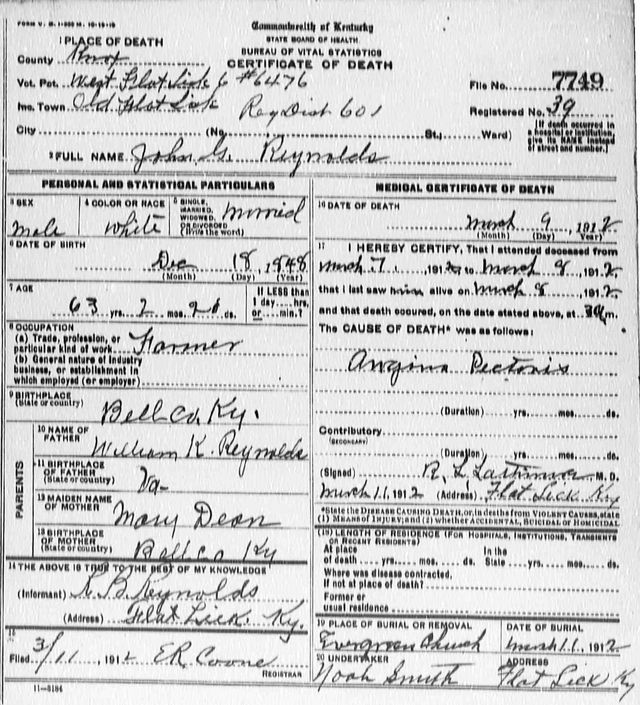 FORM V. S. 1-300 M. 10-19-10
Commonwealth of Kentucky
STATE BOARD OF HEALTH.
BUREAU OF VITAL STATISTICS
CERTIFICATE OF DEATH
1 PLACE OF DEATH
County Knox
Vot. Pct. West Flat Lick 6 #6476
File No. 7749
Inc. Town Old Flat Lick Reg Dist 601
Registered No. 39
City (No. St.; Ward)
[If death occurred in a hospital or institution, give its NAME instead of street and number.]
2 FULL NAME John G. Reynolds
PERSONAL AND STATISTICAL PARTICULARS
3 SEX Male
4 COLOR OR RACE White
5 SINGLE, MARRIED, WIDOWED, OR DIVORCED (Write the word) Married
6 DATE OF BIRTH
Dec 18, 1848
(Month) (Day) (Year)
7 AGE
63 yrs. 2 mos. ds.
If LESS than 1 day....hrs. or....min.?
8 OCCUPATION
(a) Trade, profession, or particular kind of work Farmer
(b) General nature of industry business, or establishment in which employed (or employer)
9 BIRTHPLACE
(State or country) Bell Co. Ky.
PARENTS
10 NAME OF FATHER William K. Reynolds
11 BIRTHPLACE OF FATHER (State or country) Va-
12 MAIDEN NAME OF MOTHER Mary Dean
13 BIRTHPLACE OF MOTHER (State or country) Bell co Ky
14 THE ABOVE IS TRUE TO THE BEST OF MY KNOWLEDGE
(Informant) B. Reynolds
(Address) Flat Lick. Ky.
15
Filed 3/11, 1912 E.R. Coone
REGISTRAR
11-3184
MEDICAL CERTIFICATE OF DEATH
16 DATE OF DEATH
March 9, 1912
(Month) (Day) (Year)
17 I HEREBY CERTIFY, That I attended deceased from
March 7, 1912 to March 8, 1912
that I last saw him alive on March 8, 1912
and that death occured, on the date stated above, at m.
The CAUSE OF DEATH* was as follows:
Angina Pectoris
(Duration) yrs. mos. ds.
Contributory
(SECONDARY)
(Duration) yrs. mos. ds.
(Signed) R. L. M. D.
March 11, 1912 (Address) Flat Lick Ky
*State the DISEASE CAUSING DEATH, or, in deaths from VIOLENT CAUSES, state
(1) MEANS OF INJURY; and (2) whether ACCIDENTAL, SUICIDAL OR HOMICIDAL
(18) LENGTH OF RESIDENCE (FOR HOSPITALS, INSTITUTIONS, TRANSIENTS OR RECENT RESIDENTS)
At place of death yrs. mos. ds. In the State yrs. mos. ds.
Where was disease contracted, If not at place of death?
Former or usual residence
19 PLACE OF BURIAL OR REMOVAL Evergreen Church
DATE OF BURIAL March 11, 1912
20 UNDERTAKER Noah Smith
ADDRESS Flat Lick Ky